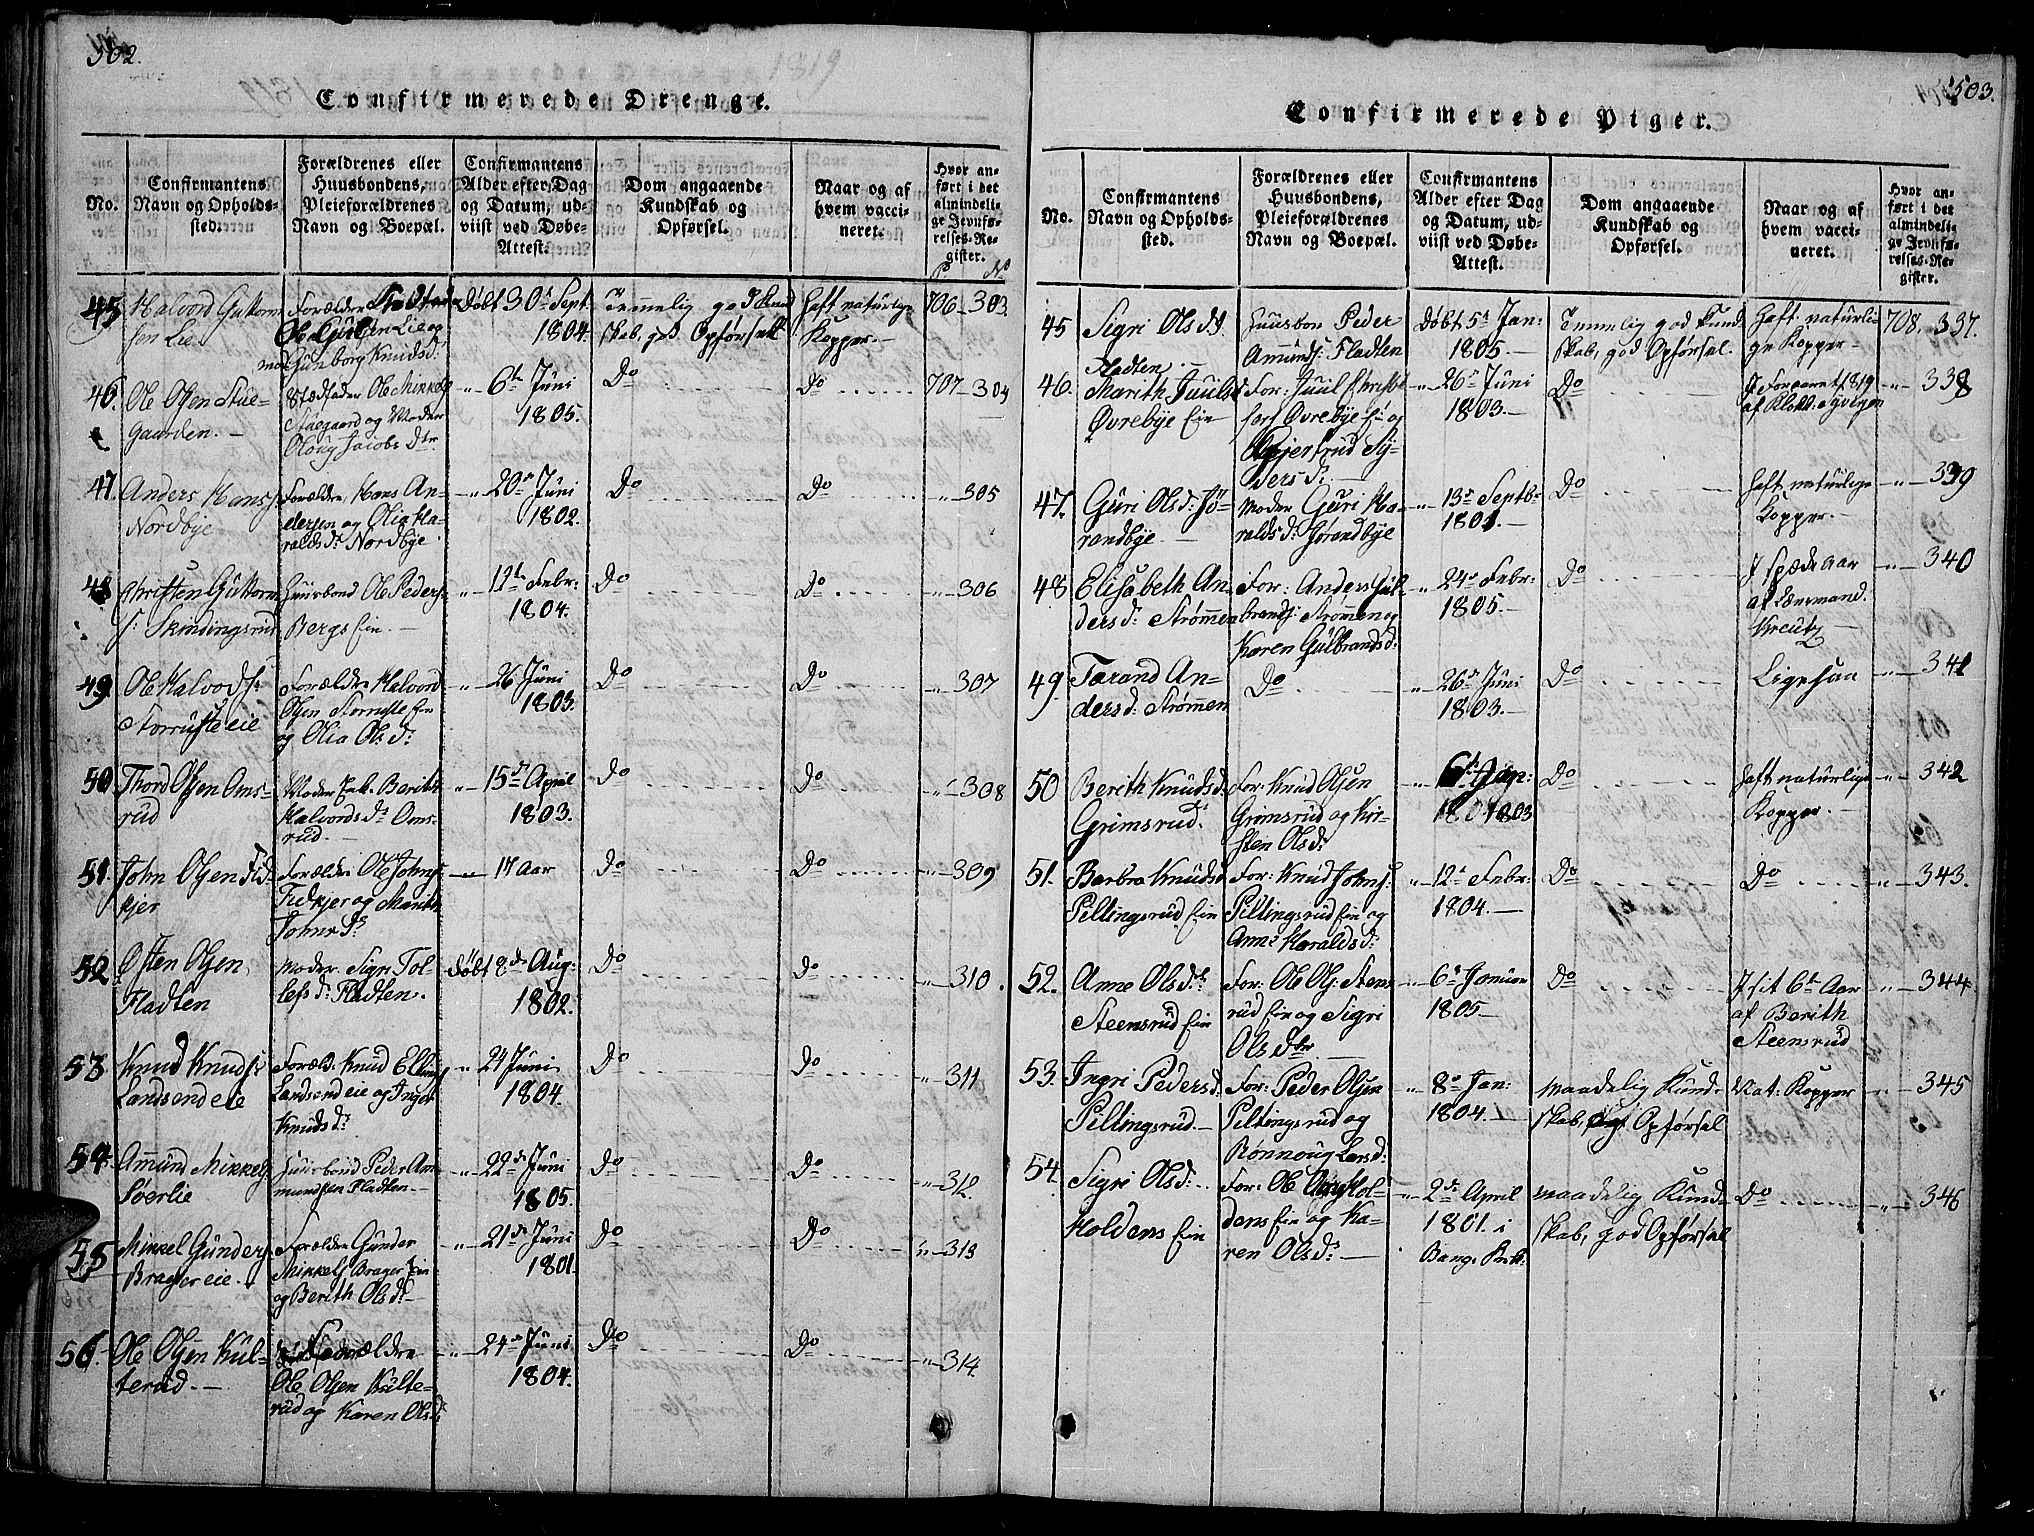 502.
1819
Confirmerede Drenge.
No.
Confirmantens Navn og Opholds-sted.
Forældrenes eller Huusbondens, Pleieforældrenes Navn og Boepæl.
Confirmantens Alder efter Dag og Datum, ud-viist ved Døbe-Attest.
Dom angaaende Kundskab og Opførsel.
Naar og af hvem vacci-neret.
Hvor an-ført i det almindeli-ge Jevnfø-relses-Re-gister.
P. No
45 Halvord Guttorm
sen Lie
Forældre
Lie og
Gunborg Knudsd:
Døbt 30te Sept.
1804.
Temmelig god Kund
skab, god Opførsell
Haft naturlige
Kopper.
706-303.
46. Ole Olsen Stue-
gaarden.
Stedfader Ole Mikkels
Stuegaard og Moder
Oloug Jacobs Dtr
" 6te Juni
1805.
Do
Do
707-304
47 Anders Hans
Nordbye
Forældre, Hans An-
dersen og Olia Ha-
raldsd: Nordbye
" 20de Juni
1802.
Do
Do
" 305
48 Christen Guttorm
s: Skindingsrud
Huusbond Ole Peders
Bergs Eie
" 12te Febr:
1804.
Do
Do
" 306
49 Ole Halvords:
Storruste eie
Forældre Halvord
Olsen Storruste Eie
og Olia Olsd:
" 26 Juni
1803.
Do
Do
" 307
50 Thord Olsen Oms-
rud
Moder Enk. Berith
Halvordsd: Oms-
rud.
" 15de April
1803.
Do
Do
" 308
51 John Olsen Fid-
kjer
Forældre Ole Johns
Fidkjer og Marith
Johnsd:
17 Aar
Do
Do
" 309
52 Østen Olsen
Fladten
Moder Sigri Tol-
lefsd: Fladten.
Døbt 8de Aug:
1802.
Do
Do
" 310.
53 Knud Knuds:
Landsend eie
Foræld: Knud Ellings
Landsend eie og Inger
Knudsd:
" 24 Juni
1804.
Do
Do
" 311
54 Amund Mikkels
Søerlie
Huusbond Peder Am
mundsen Fladten
" 22de Juni
1805.
Do
Do
" 312.
55 Mikkel Gunders
Brager eie.
Forældre Gunder
Mikkels Brager Eie
og Berith Olsd:
" 21de Juni
1801.
Do
Do
" 313
56. Ole Olsen Kul-
terud.
Forældre
Ole Olsen Kulte-
rud og Karen Olsd:
" 24de Juni
1804.
Do
Do
" 314.
503.
Confirmerede Piger.
No.
Confirmantens Navn og Opholds-sted.
Forældrenes eller Huusbondens, Pleieforældrenes Navn og Boepæl.
Confirmantens Alder efter Dag og Datum, ud-viist ved Døbe-Attest.
Dom angaaende Kundskab og Opførsel.
Naar og af hvem vacci-neret.
Hvor an-ført i det almindeli-ge Jevnfø-relses-Re-gister.
45 Sigri Olsd:
Fladten
Huusbon Peder
Ammunds: Fladten
Døbt 5te Jan:
1805.
Temmelig god Kund
skab, god Opførsel.
Haft naturli-
ge Kopper
708, 337.
46. Marith Juulsd
Øvrebye Eie
For: Juul
Øvrebye Ei og
" 26de Juni
1803.
Do
1819
af Klokk:
" 338
47. Guri Olsd: Jø-
randbye
Moder Guri Ha-
raldsd: Jørandbye
" 13de Septb:
1801.
Do
Haft naturlige
Kopper.
" 339
48 Elisabeth An
dersd: Strømmen
For: Anders Gul-
brands: Strømmen og
Karen Gulbrandsd:
" 24de Febr:
1805.
Do
I spæde Aar
af Lænsmand
Kreutz
" 340
49 Tarand An-
dersd: Strømmen
Do
" 26de Juni
1803.
Do
Ligesaa
" 341
50 Berith Knudsd:
Grimsrud.
For: Knud Olsen
Grimsrud og Kir-
sten Olsd:
" 6te Jan:
1803
Do
Haft naturlige
Kopper.
" 342
51. Barbra Knudsd.
Pellingsrud Eie
For: Knud Johns:
Pellingsrud Eie og
Anne Haraldsd:
" 12te Febr:
1804.
Do
Do
" 343.
52. Anne Olsd:
Steensrud Eie
For: Ole Ols: Stens
rud Eie og Sigri
Olsdtr
" 6te Januar
1805
Do
I sit 6te Aar
af Berith
Steensrud
" 344
53. Ingri Pedersd.
Pellingsrud.
For: Peder Olsen
Pellingsrud og
Rønnoug Larsd:
" 8de Jan:
1804.
maadelig Kund-
skab, god Opførsel
Nat: Kopper
" 345
54 Sigri Olsd:
Holdens Eie
For: Ole Hol-
dens Eie og Ka-
ren Olsd:
" 2de April
1801. i
Bangs Kirk:
maadelig Kund
skab, god Opførsel
Do
" 346